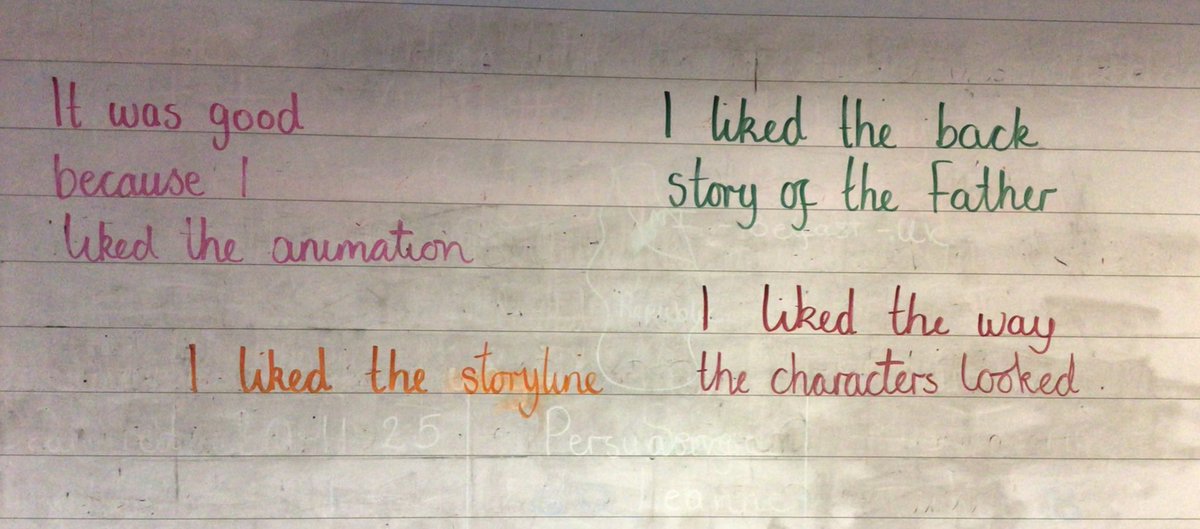 It was good
because I
liked the animation
I liked the back
story of the Father
I liked the storyline
I liked the way
the characters looked.